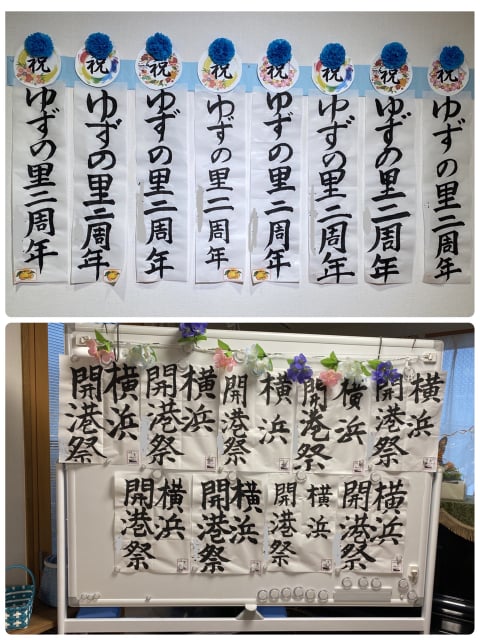 祝
ゆずの里二周年
祝
ゆずの里二周年
祝
ゆずの里二周年
祝
ゆずの里二周年
祝
ゆずの里二周年
祝
ゆずの里二周年
祝
ゆずの里二周年
祝
ゆずの里二周年
横浜
開港祭
横浜
開港祭
横浜
開港祭
横浜
開港祭
横浜
開港祭
横浜
開港祭
横浜
開港祭
横浜
開港祭
横浜
開港祭